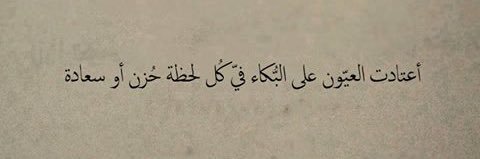 أعتادت العيّون على البُكاء فيّ كُل لحظة حُزن أو سعادة